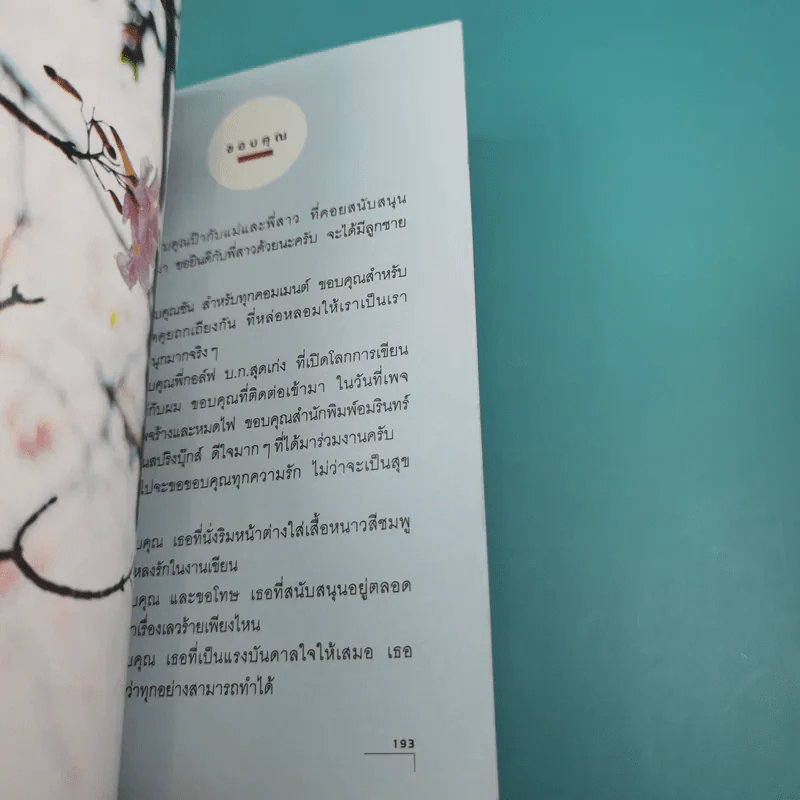 ขอบคุณ
คุณป๊ากับแม่และพี่สาว ที่คอยสนับสนุน
ขอยินดีกับพี่สาวด้วยนะครับ จะได้มีลูกชาย
สำหรับทุกคอมเมนต์ ขอบคุณสำหรับ
คุยถกเถียงกัน ที่หล่อหลอมให้เราเป็นเรา
นุกมากจริงๆ
บคุณพี่กอล์ฟ บ.ก.สุดเก่ง ที่เปิดโลกการเขียน
กับผม ขอบคุณที่ติดต่อเข้ามา ในวันที่เพจ
จร้างและหมดไฟ ขอบคุณสำนักพิมพ์อมรินทร์
นสปริงบุ๊กส์ ดีใจมากๆ ที่ได้มาร่วมงานครับ
ไปจะขอขอบคุณทุกความรัก ไม่ว่าจะเป็นสุข
บคุณ เธอที่นั่งริมหน้าต่างใส่เสื้อหนาวสีชมพู
หลงรักในงานเขียน
บคุณ และขอโทษ เธอที่สนับสนุนอยู่ตลอด
าเรื่องเลวร้ายเพียงไหน
บคุณ เธอที่เป็นแรงบันดาลใจให้เสมอ เธอ
ว่าทุกอย่างสามารถทำได้
193